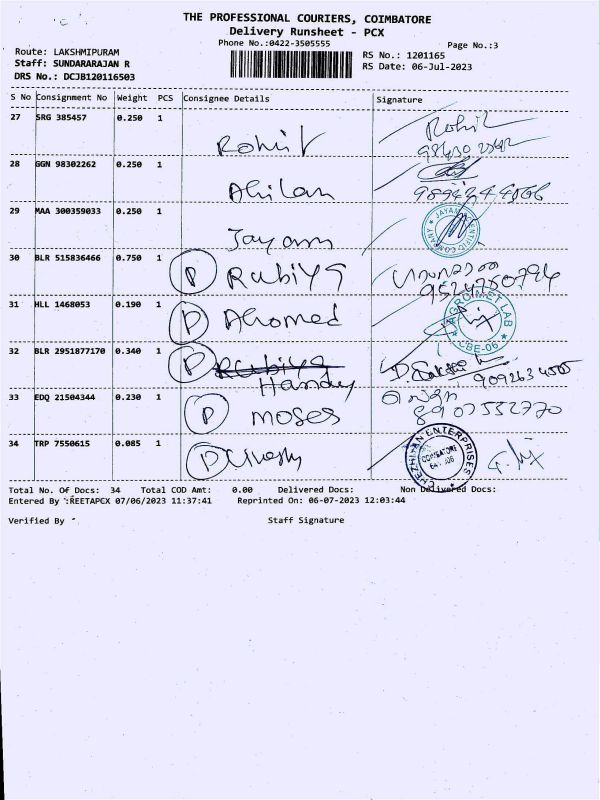 THE PROFESSIONAL COURIERS, COIMBATORE
Delivery Runsheet - PCX
Phone No.:0422-3505555
Page No.:3
Route: LAKSHMIPURAM
Staff: SUNDARARAJAN R
DRS No.: DCJB120116503
RS No.: 1201165
RS Date: 06-Jul-2023
S No Consignment No Weight PCS Consignee Details Signature
27 SRG 385457 0.250 1 Rohit Rohit
28 GGN 98302262 0.250 1 Ahilan
29 MAA 300359033 0.250 1 Jayam
30 BLR 515836466 0.750 1 P Rubiya
31 HLL 1468053 0.190 1 P Ahomed AGROMET LAB CBE-06
32 BLR 2951877170 0.340 1 P Rubiya
33 EDQ 21504344 0.230 1 P moses 8907552770
34 TRP 7550615 0.085 1 CHEZHIYAN ENTERPRISES
Total No. Of Docs: 34 Total COD Amt: 0.00 Delivered Docs: Non Delivered Docs:
Entered By :REETAPCX 07/06/2023 11:37:41 Reprinted On: 06-07-2023 12:03:44
Verified By Staff Signature